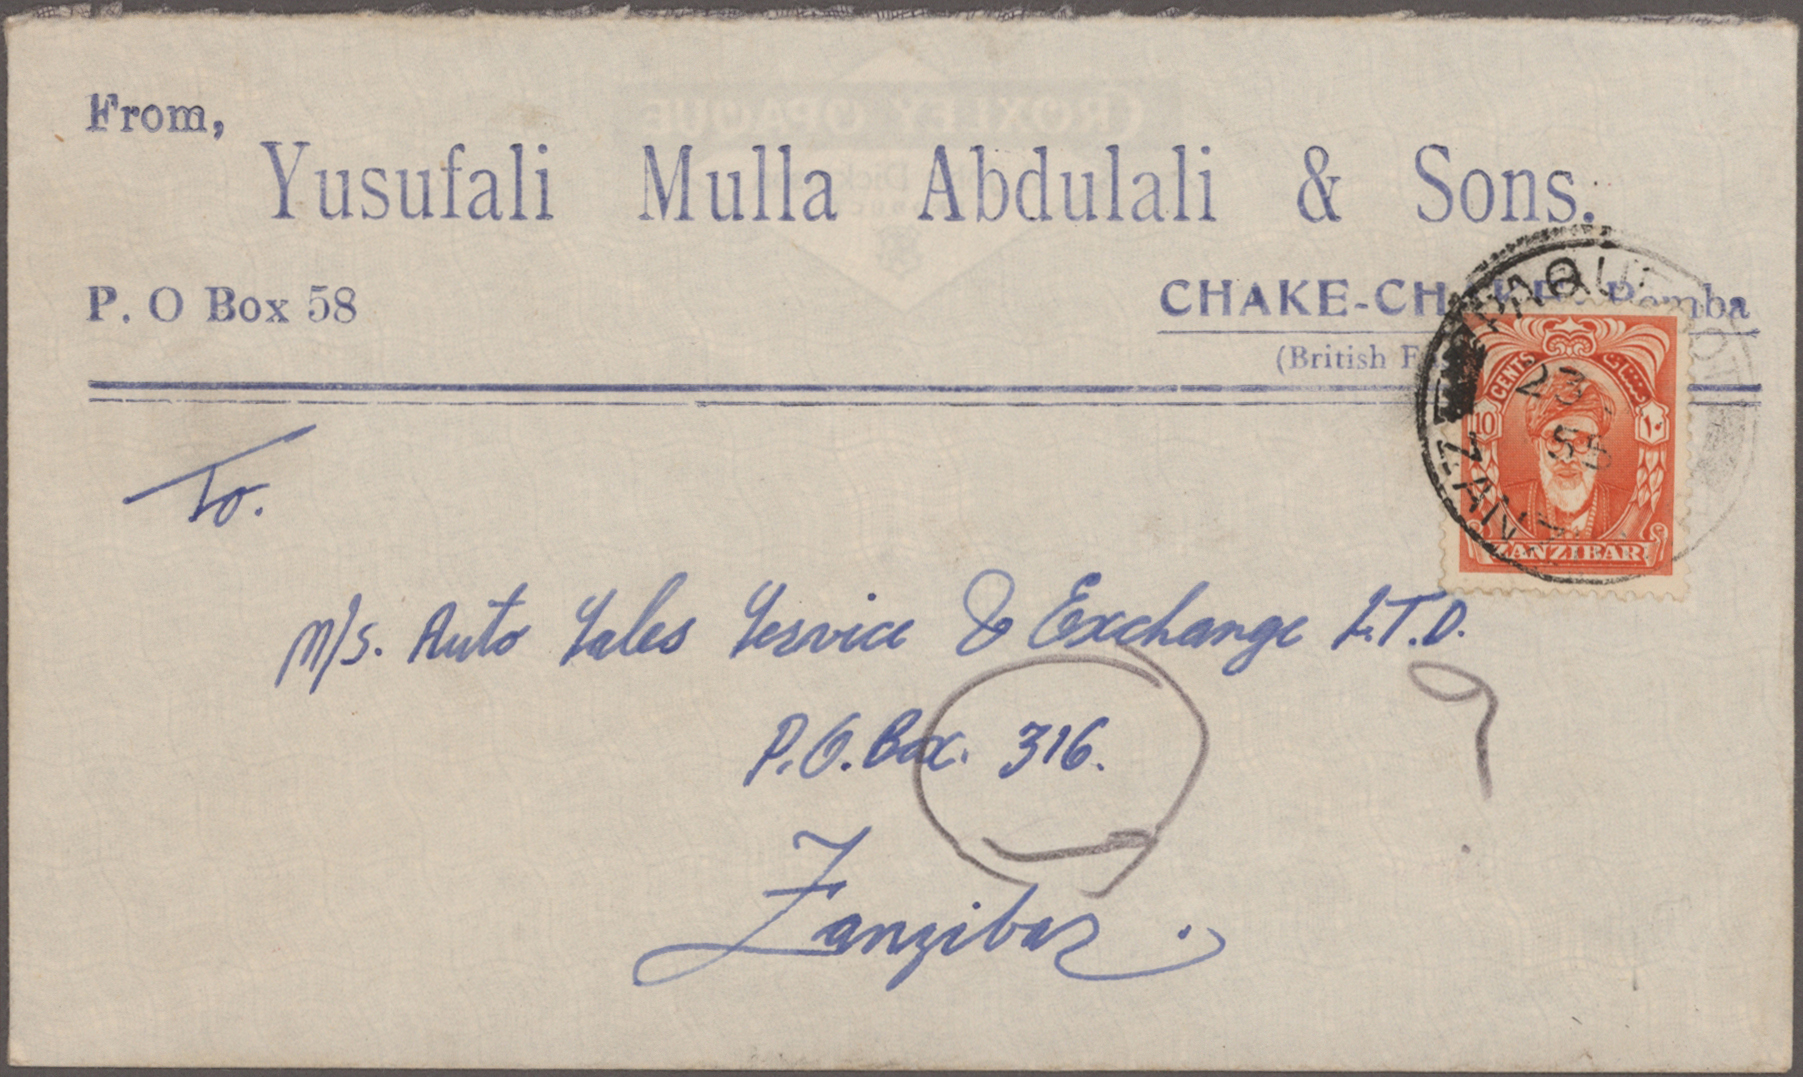 From,
Yusufali Mulla Abdulali & Sons.
P. O Box 58
CHAKE-CHAKE Pemba
(British
PAQUEBOT
23
55
ZANZ
CENTS
10
١٠
ZANZIBAR
To.
M/s. Auto Sales Service & Exchange L.T.D.
P.O. Box. 316.
Zanzibar.
CROXLEY OPAQUE